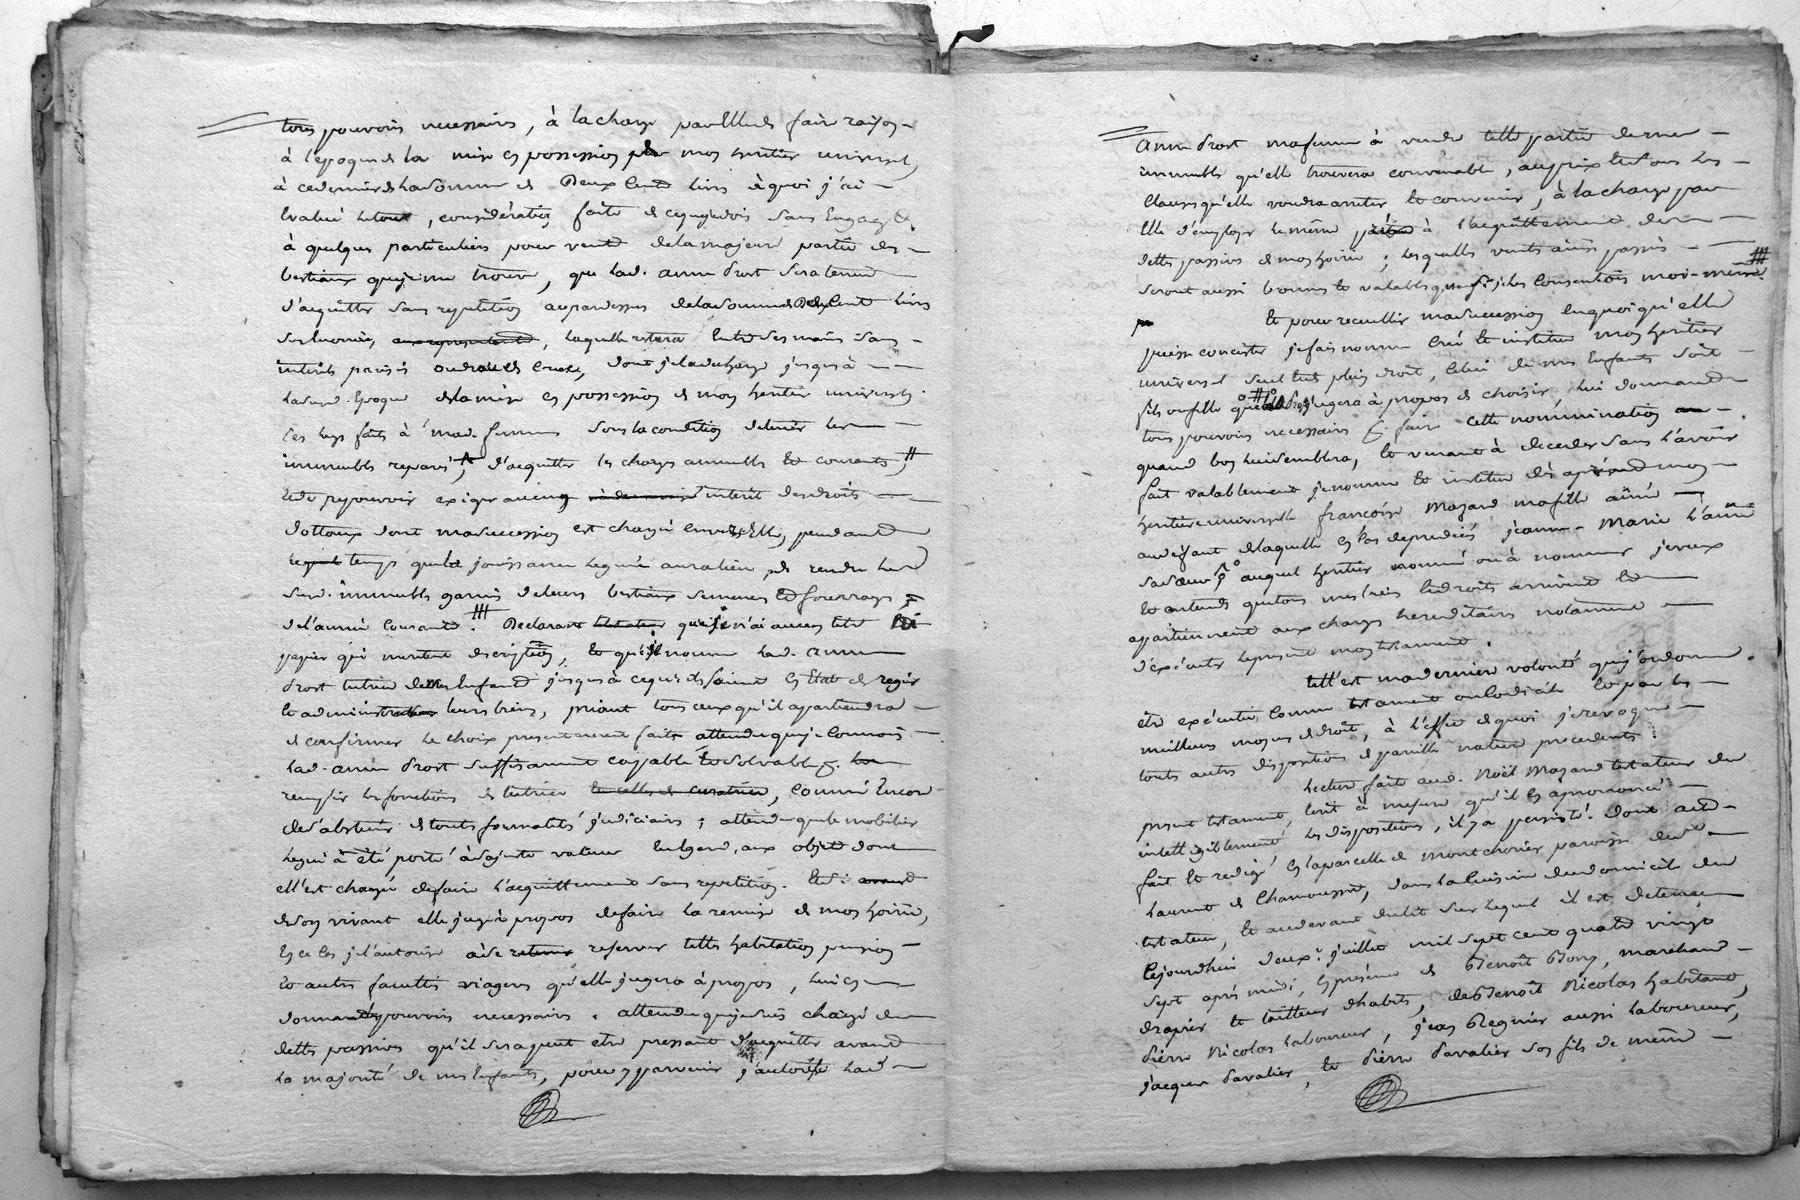 tous pouvoirs necessaires, à la charge par Elle de faire raison
à l'epoque de la mise en possession par mon heritier universel,
à ce dernier de la somme de Deux Cent livres à quoi j'ai
Evalué le tout, consideration faite de ce que je dois
à quelques particuliers pour vente de la majeure partie des
bestiaux que je me trouve, que lad. anne drost sera tenue
d'acquitter sans repetition au par dessus de la somme de deux Cent livres
, laquelle restera Entre ses mains sans
interets , dont je la decharge jusques à
lad. Epoque de la mise en possession de mon heritier universel.
Ces legs faits à mad. femme sous la condition de tenir les
immeubles reparés, d'acquitter les charges annuelles et courantes,
et de ne pouvoir exiger aucun interet des droits
dottaux dont ma succession est chargée envers Elle, pendant
temps que la jouissance leguée aura lieu, de rendre les
susd. immeubles garnis de leurs bestiaux semences et fourrages
de l'année courante. Declarant que je n'ai aucun titre ni
papier qui meritent description, et que je nomme lad. anne
drost tutrice de mes Enfants jusques à ce qu'ils soient En Etat de regir
et administrer leurs biens, priant tous ceux qu'il apartiendra
de confirmer le choix presentement fait attendu que je connois
lad. anne drost suffisamment capable et solvable pr.
remplir les fonctions de tutrice et celles de curatrice, Comme Encore
de s'abstenir de toutes formalités judiciaires; attendu que le mobilier
legué a été porté à sa juste valeur Eu Egard aux objets dont
ell'est chargée de faire l'acquittement sans repetition. Et si
de son vivant elle juge à propos de faire la remise de mon hoirie,
En ce cas je l'autorise à se reserver telle habitation pension
et autres facultés viageres qu'elle jugera à propos, lui en
donnant pouvoirs necessaires. attendu que je suis chargé de
dettes passives qu'il seroit peut etre pressant d'acquitter avant
la majorité de mes Enfants, pour y parvenir j'autorise lad.
anne drost ma femme à vendre telle partie de mes
immeubles qu'elle trouvera convenable, au prix et sous les
Clauses qu'elle voudra arreter et convenir, à la charge par
Elle d'employer le même prix à l'acquittement des
dettes passives de mon hoirie; lesquelles ventes ainsi passées
seront aussi bonnes et valables que si je les Consentois moi-meme
et pour recueillir ma succession En quoi qu'elle
puisse consister je fais nomme Crée et institue mon heritier
universel seul et de plein droit, Celui de mes Enfants soit
fils ou fille que jugera à propos de choisir, lui donnant
tous pouvoirs necessaires pr. faire cette nommination
quand bon lui semblera, et venant à deceder sans l'avoir
fait valablement je nomme et institue dès à present mon
heritiere universelle françoise Mazard ma fille ainée
au deffaut de laquelle En Cas de predecés jeanne-Marie l'ainée
sa sœur auquel heritier nommé ou à nommer je veux
et entends que tous mes biens et droits arrivent et
apartiennent aux charges hereditaires notamment
d'executer le present mon testament.
tell'est ma derniere volonté que j'ordonne
etre executée Comme testament ou Codicile et par les
meilleurs moyens de droit, à l'effet de quoi je revoque
toutes autres dispositions de pareille nature precedentes
Lecture faite aud. Noël Mazard testateur du
present testament, Ecrit à mesure qu'il En a prononcé
intelligiblement les dispositions, il y a persisté. Dont acte
fait et redigé En la parcelle de montchorier paroisse de
Laurent de Chamousset, dans la Cuisine du domicile du
testateur, et au devant du lit sur lequel il est detenu
Cejourdhui deux juillet mil sept cent quatre vingt
sept après midi, En presence de Benoît Bony, marchand
drapier et tailleur d'habits, de Benoît Nicolas habitant,
Pierre Nicolas laboureur, jean Regnier aussi laboureur,
jacques Davalier, et Pierre Davalier son fils de même